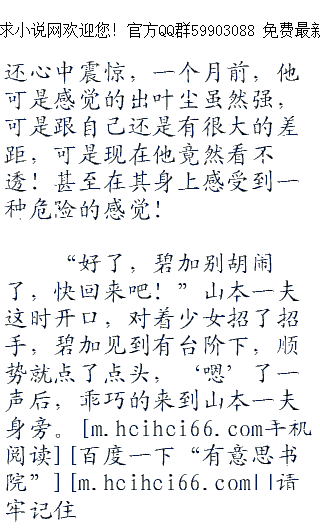 求小说网欢迎您！官方QQ群59903088 免费最新
还心中震惊，一个月前，他
可是感觉的出叶尘虽然强，
可是跟自己还是有很大的差
距，可是现在他竟然看不
透！甚至在其身上感受到一
种危险的感觉！
“好了，碧加别胡闹
了，快回来吧！”山本一夫
这时开口，对着少女招了招
手，碧加见到有台阶下，顺
势就点了点头，‘嗯’了一
声后，乖巧的来到山本一夫
身旁。[m.hcihci66.com手机
阅读][百度一下“有意思书
院”][m.hcihci66.com||请
牢记住